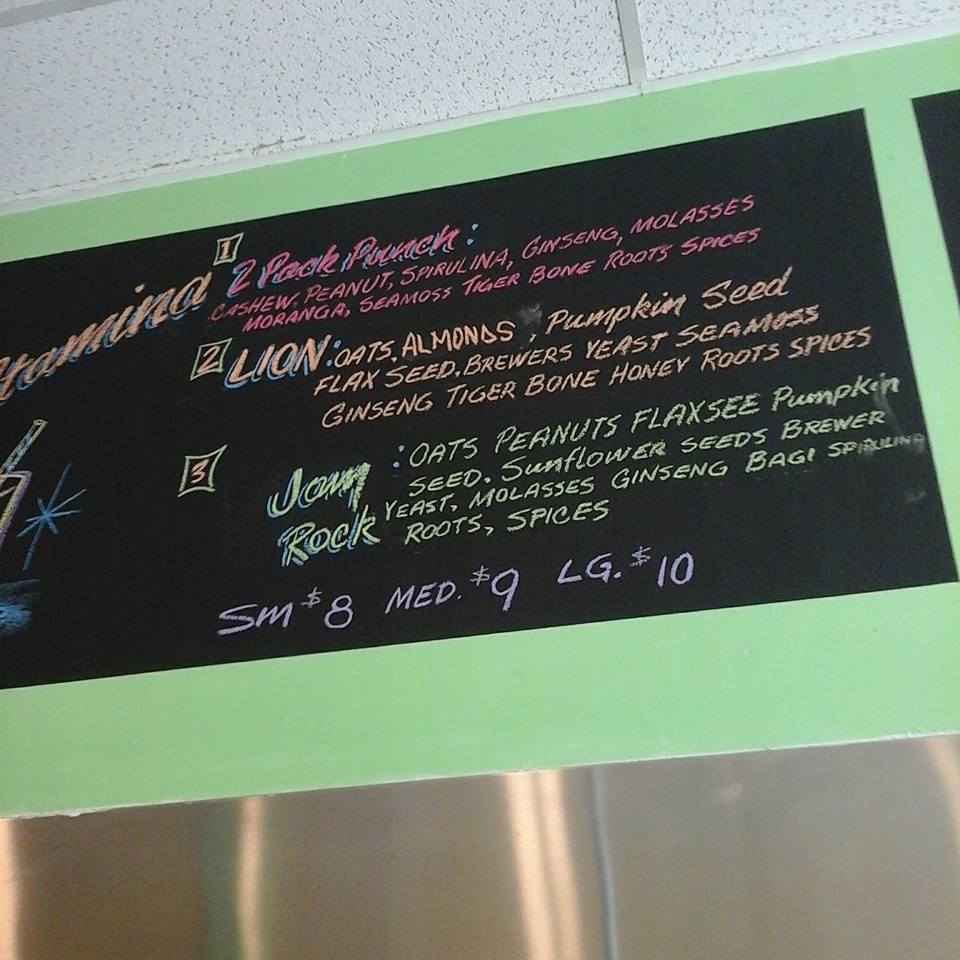 Stamina
1
2 Pack Punch:
CASHEW, PEANUT, SPIRULINA, GINSENG, MOLASSES
MORANGA, SEAMOSS TIGER BONE ROOTS SPICES
2 LION: OATS, ALMONDS, Pumpkin Seed
FLAX SEED, BREWERS YEAST SEAMOSS
GINSENG TIGER BONE HONEY ROOTS SPICES
3
Jam Rock
: OATS PEANUTS FLAXSEE Pumpkin
SEED. Sunflower SEEDS BREWER
YEAST, MOLASSES GINSENG BAGI SPIRULINA
ROOTS, SPICES
SM $8 MED. $9 LG. $10